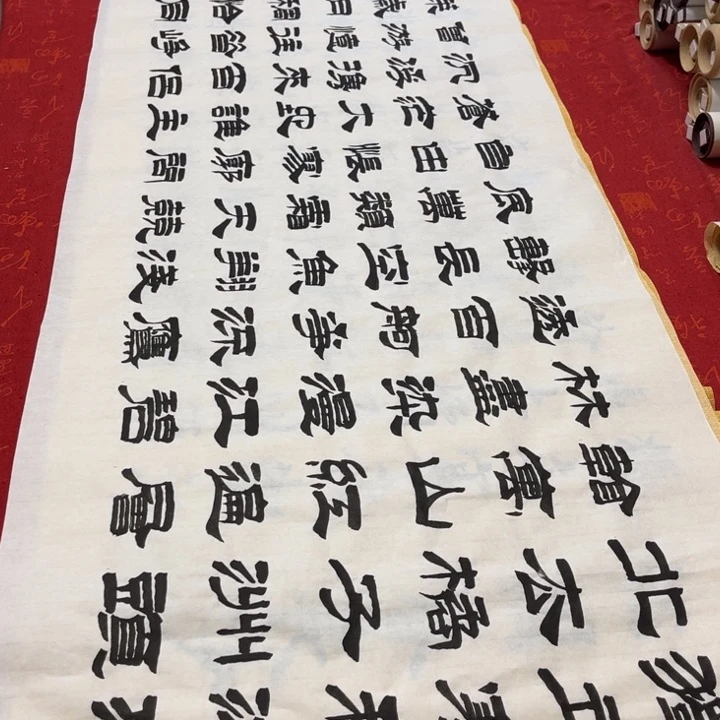 獨立寒秋湘江
北去橘子洲頭
看萬山紅遍層
林盡染漫江碧
透百舸爭流鷹
擊長空魚翔淺
底萬類霜天競
自由悵寥廓問
蒼茫大地誰主
沉浮攜來百侶
曾遊憶往昔崢
歲月稠恰同